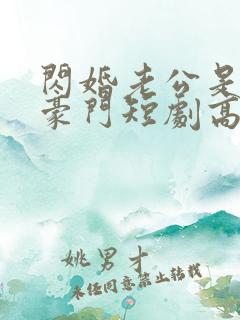 閃婚老公是
豪門短劇高
姚男才
未经同意禁止转载